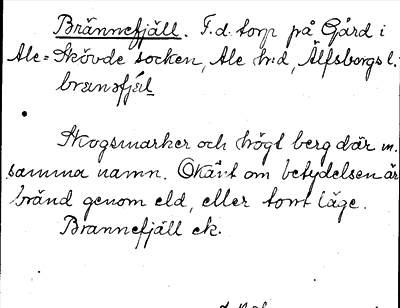 Brännefjäll. F.d. torp på Gård i
Ale=Skövde socken, Ale hd, Älfsborgs l.
branəfjæl
Skogsmarker och högt berg där m.
samma namn. Okänt om betydelsen är
bränd genom eld, eller tomt läge.
Brannefjäll ek.